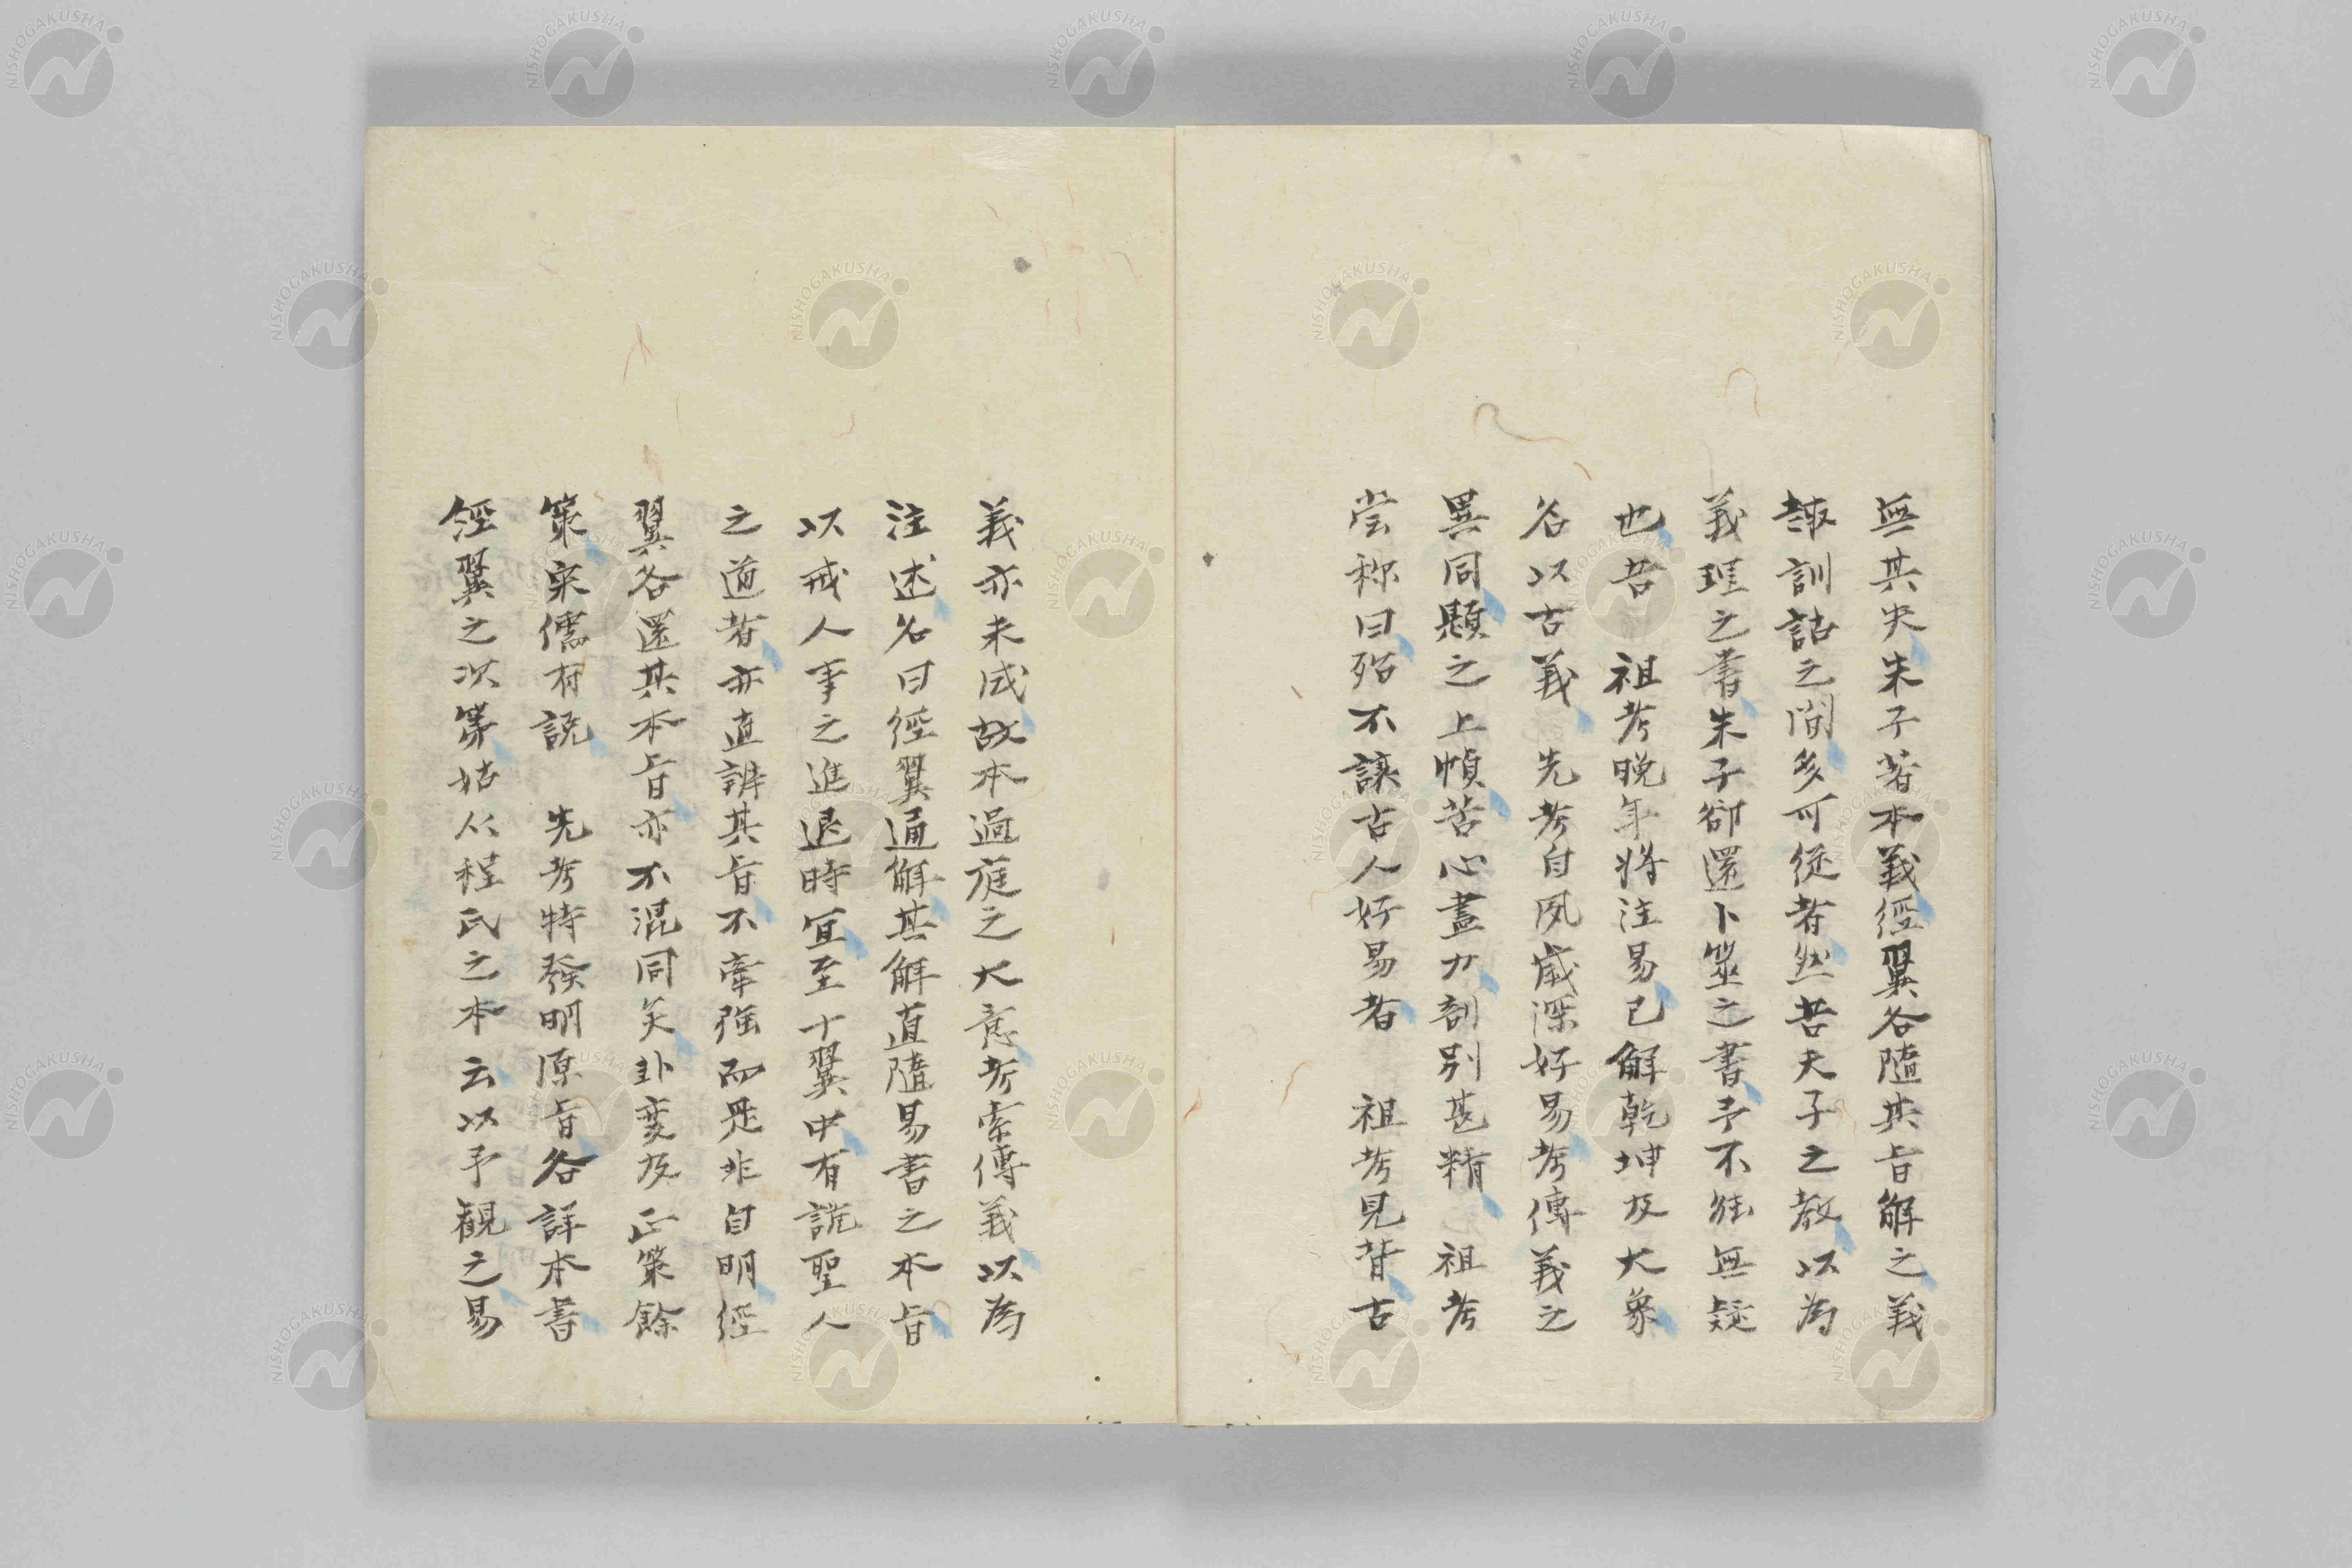 無其失朱子著本義經翼各隨其旨解之義
趣訓詁之間多可從者然吾夫子之教以為
義理之書朱子卻還卜筮之書予不能無疑
也吾 祖考晩年將注易已解乾坤及大象
名以古義 先考自夙歲深好易考傳義之
異同題之上幀苦心盡力剖別甚精 祖考
嘗称曰殆不讓古人好易者 祖考見背古
義亦未成故本過庭之大意考索傳義以為
注述名曰經翼通解其解直隨易書之本旨
以戒人事之進退時宜至十翼中有說聖人
之道者亦直辨其旨不牽強而是非自明經
翼各還其本旨亦不混同矣卦变及正策餘
策宋儒有説 先考特發明原旨各詳本書
經翼之次第姑从程氏之本云以予観之易
NISHOGAKUSHA